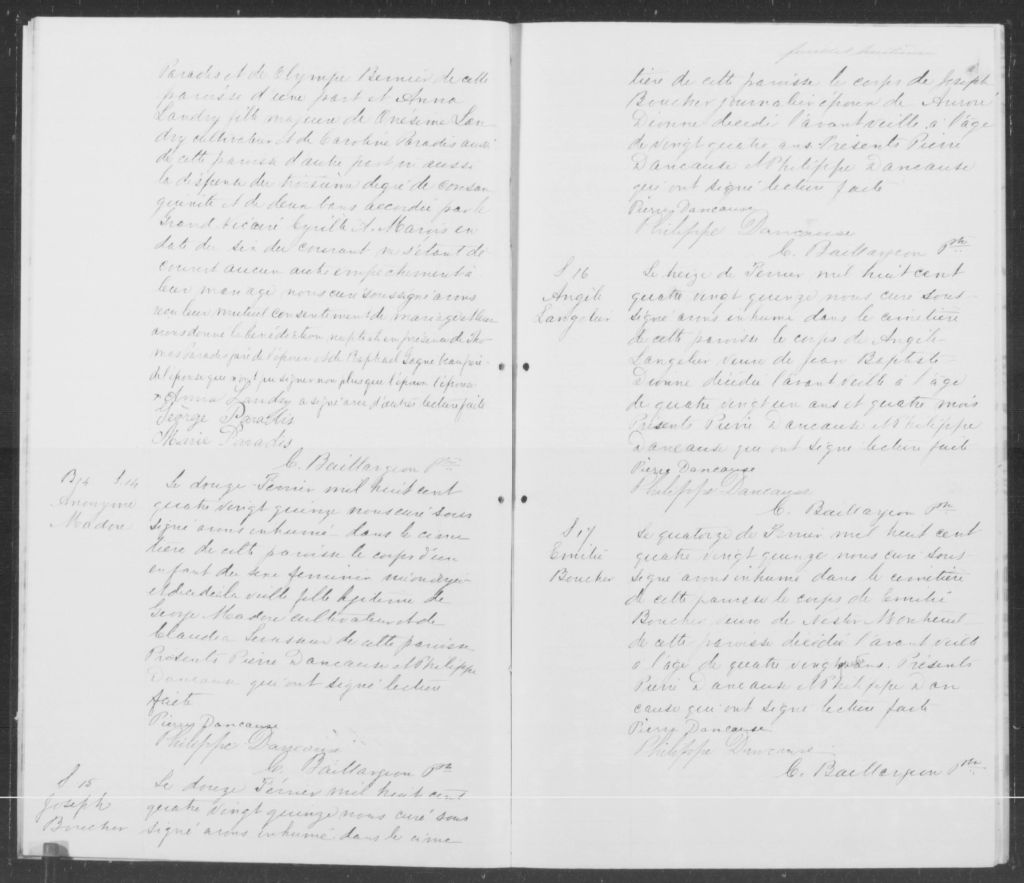 Paradis et de Olympe Bernier de cette
paroisse d'une part et Anna
Landry fille majeure de Onesime Lan
dry cultivateur et de Caroline Paradis aussi
de cette paroisse d'autre part vu aussi
la dispense du troisième degré de consan
guinité et de deux bans accordée par le
Grand Vicaire Cyrille A. Marois en
date du six du courant ne s'étant dé
couvert aucun autre empêchement à
leur mariage nous curé soussigné avons
reçu leur mutuel consentement de mariage et leur
avons donné la bénédiction nuptiale en présence de Tho
mas Paradis père de l'époux et de Raphael Gagné beau père
de l'épouse qui n'ont pu signer non plus que l'époux l'épouse
Anna Landry a signé avec d'autres lecture faite
George Paradis
Marie Paradis
C. Baillargeon Ptre
B14 S14
Anonyme
Madore
Le douze Fevrier mil huit cent
quatre vingt quinze nous curé sous
signé avons inhumé dans le cime
tière de cette paroisse le corps d'un
enfant du sexe feminin né ondoyé
et décédé la veille fille légitime de
George Madore cultivateur et de
Claudia Levasseur de cette paroisse
Présents Pierre Dancause et Philippe
Dancause qui ont signé lecture
faite
Pierre Dancause
Philippe Dancause
C. Baillargeon Ptre
S 15
Joseph
Boucher
Le douze Février mil huit cent
quatre vingt quinze nous curé sous
signé avons inhumé dans le cime
tière de cette paroisse le corps de Joseph
Boucher journalier époux de Aurore
Dionne décédé l'avant veille à l'age
de vingt quatre ans Présents Pierre
Dancause et Philippe Dancause
qui ont signé lecture faite
Pierre Dancause
Philippe Dancause
C. Baillargeon Ptre
S 16
Angèle
Langelier
Le treize de Fevrier mil huit cent
quatre vingt quinze nous curé sous-
signé avons inhumé dans le cimetière
de cette paroisse le corps de Angèle
Langelier veuve de Jean Baptiste
Dionne décédée l'avant veille à l'âge
de quatre vingt un ans et quatre mois
Présents Pierre Dancause et Philippe
Dancause qui ont signé lecture faite
Pierre Dancause
Philippe Dancause
C. Baillargeon Ptre
S 17
Emilie
Boucher
Le quatorze de Fevrier mil huit cent
quatre vingt quinze nous curé sous-
signé avons inhumé dans le cimetière
de cette paroisse le corps de Emilie
Boucher veuve de Nestor
de cette paroisse décédée l'avant veille
à l'âge de quatre vingt ans. Présents
Pierre Dancause et Philippe Dan
cause qui ont signé lecture faite
Pierre Dancause
Philippe Dancause
C. Baillargeon Ptre